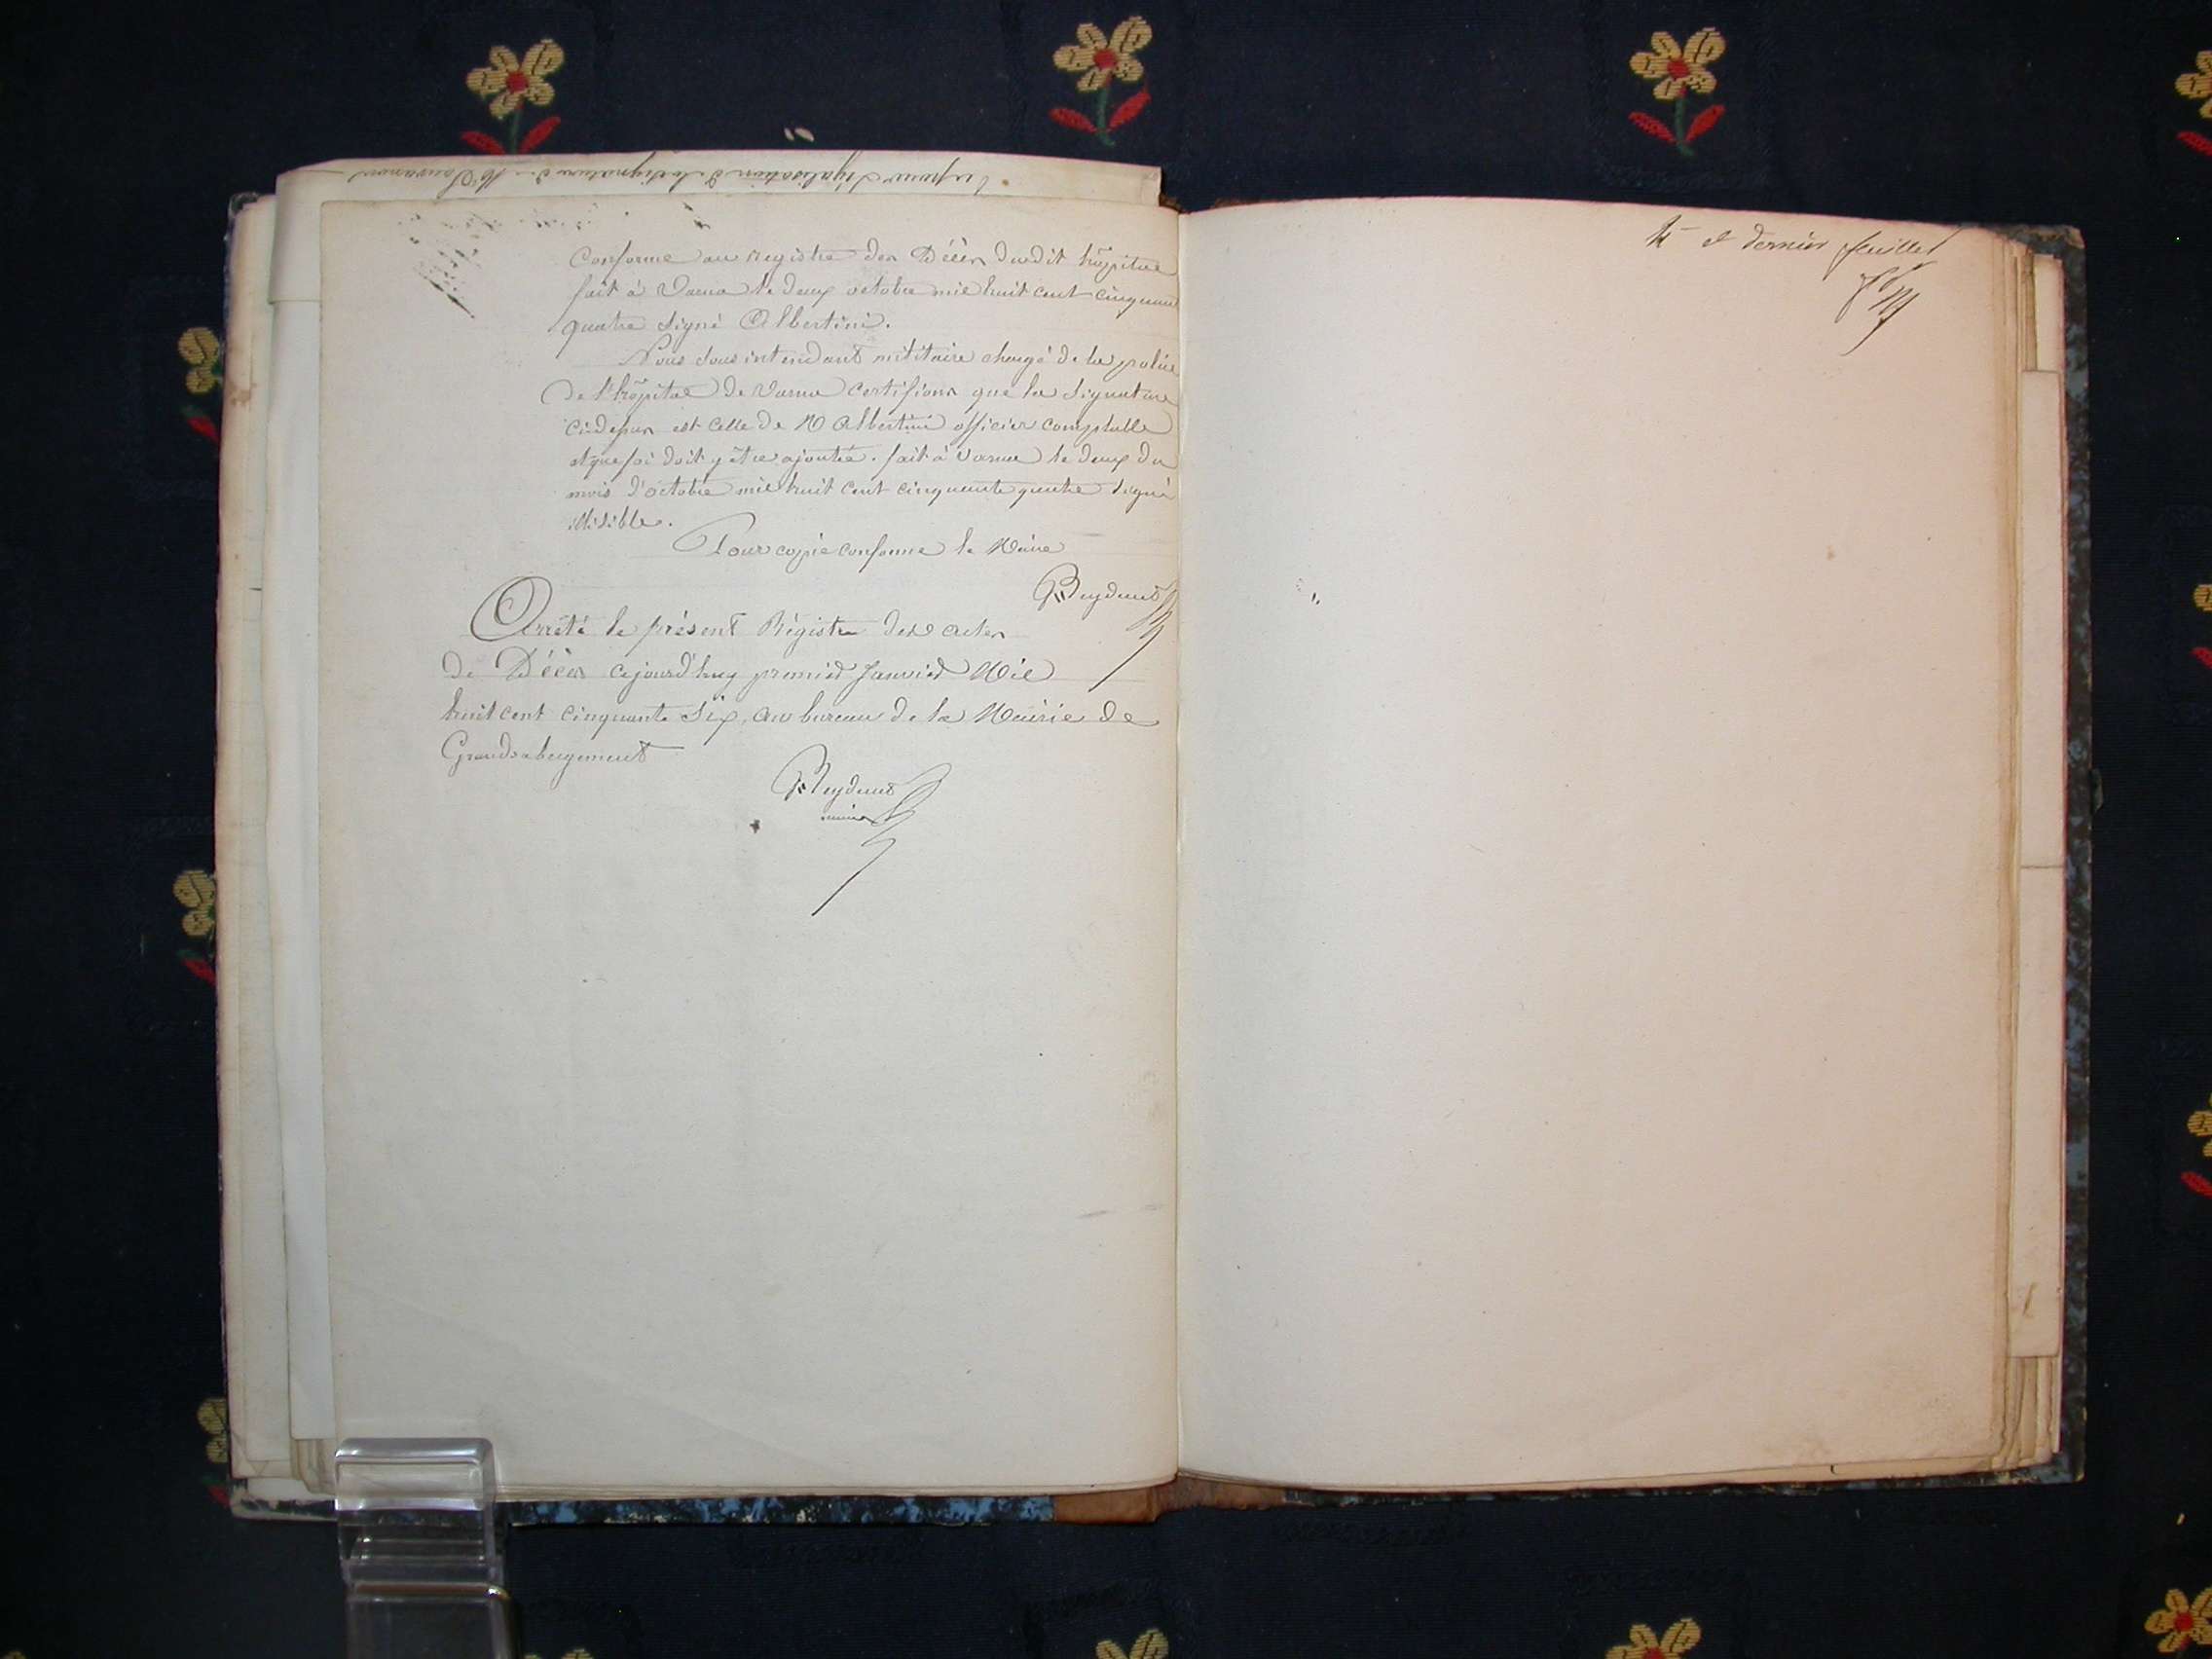 Vu pour légalisation de la signature de Mr
Conforme au registre des Décès dudit hôpital
fait à Varna le deux octobre mil huit cent cinquante
quatre signé Albertini.
Nous sous intendant militaire chargé de la police
De l'hôpital de Varna certifions que la signature
ci-dessus est celle de M Albertini officier comptable
et que foi doit y être ajoutée. fait à Varna le deux du
mois d'octobre mil huit cent cinquante quatre signé
illisible.
Pour copie conforme le Maire
Reydeud
Arrêté le présent Régistre des actes
De Décès cejourd'huy premier Janvier Mil
huit cent cinquante Six, au bureau de la Mairie de
Grandabergement
Reydeud
maire
4e et dernier feuillet